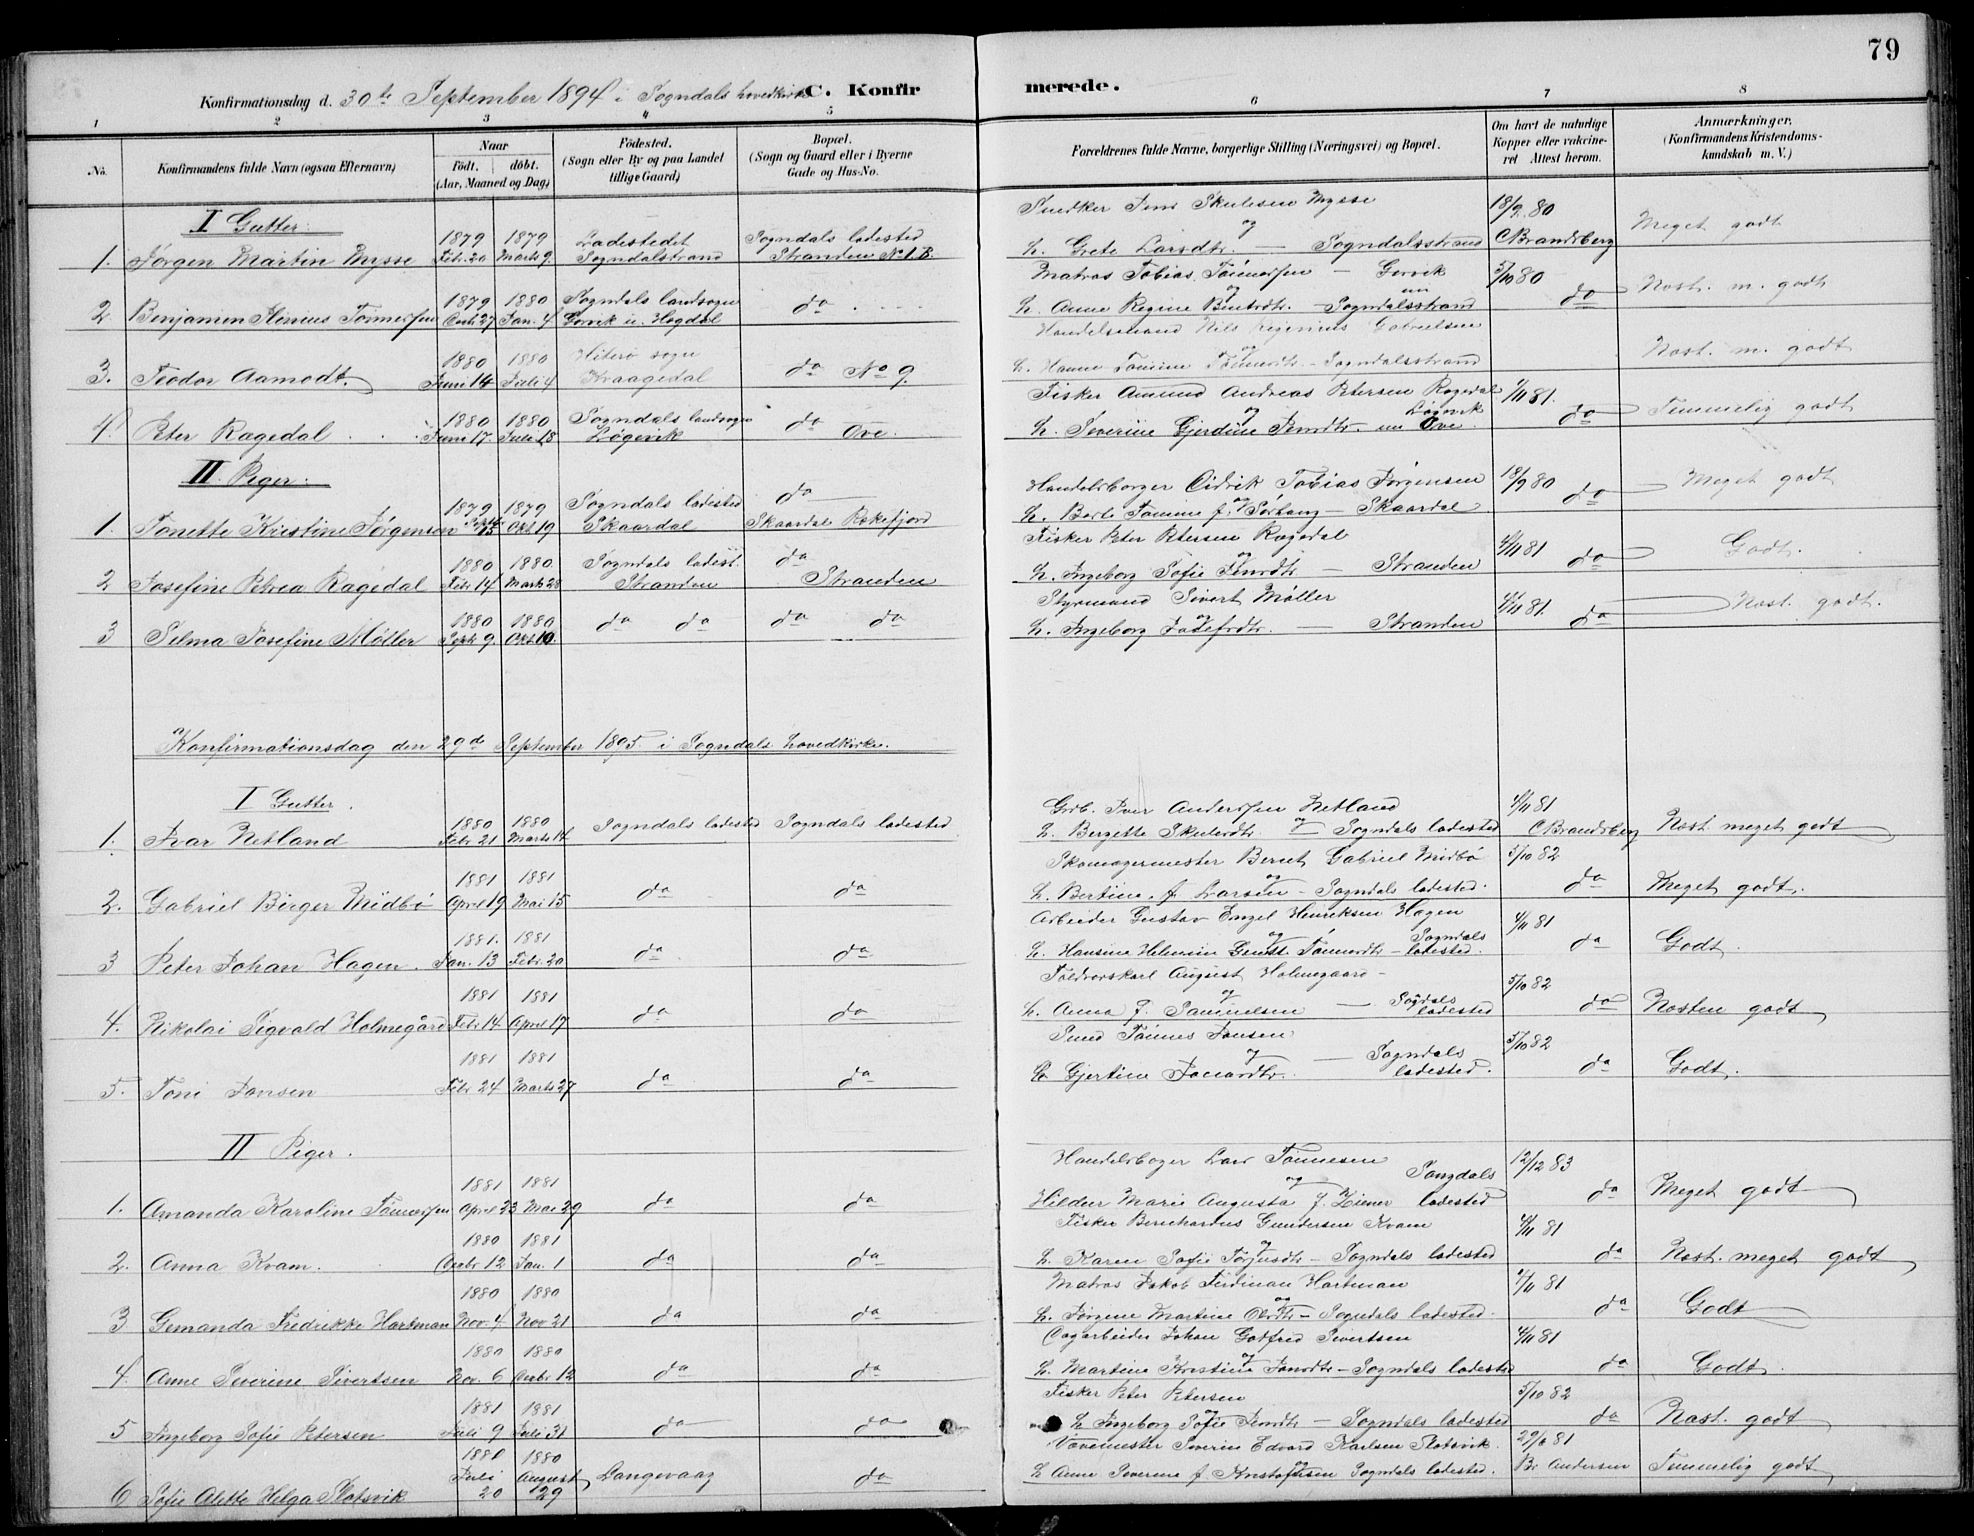 79
Konfirmationsdag d. 30te September 1894 i Sogndals hovedkirke C. Konfirmerede.
1 2 3 4 5 6 7 8
No.
Konfirmandens fulde Navn (ogsaa Efternavn)
Naar
Födt. döbt.
(Aar, Maaned og Dag)
Födested.
(Sogn eller By og paa Landet
tillige Gaard)
Bopæl.
(Sogn og Gaard eller i Byerne
Gade og Hus-No.
Forældrenes fulde Navne, borgerlige Stilling (Næringsvei) og Bopæl.
Om havt de naturlige
Kopper eller vakcine-
ret Attest herom.
Anmærkninger.
(Konfirmandens Kristendoms-
kundskab m. V.)
I Gutter.
Snedker Jens Skulesen Mysse 18/9 80
1. Jørgen Martin Mysse 1879 Febr. 20 1879 Marts 9. Ladestedet Sogndalstrand Sogndals ladested Stranden No 1.B. og h. Grete Larsdtr. — Sogndalsstrand C Brandsberg Meget godt
Matros Tobias Tönnesen — Gorvik 5/10 80
2. Benjamin 1879 27 1880 Jan. 4 Sogndals landsogn Gorvik u. Hogdal do og h. Anne Regine — nu Sogndalsstrand do Næst. m. godt
Handelsmand Nils Gabrielsen
3. Teodor Aamodt. 1880 Juni 14 1880 Juli 4 Hiterö sogn Kraagedal do No 9. og h. Hanne — Sogndalsstrand Næst. m. godt
Fisker Amund Andreas Petersen Ragedal 4/11 81.
4. Peter Ragedal 1880 Juni 17. 1880 Juli 18 Sogndals landsogn Løgevik do Ove. og h. Severine Gjerdine Jensdtr. Løgevik nu Ove. do Temmelig godt
II. Piger.
Handelsborger Tobias Jørgensen 18/9 80
1. Tonette Kristine Jørgensen 1879 Septb. 15 1879 Okt. 19 Sogndals ladested Skaardal do Skaardal Rekefjord og h. f. — Skaardal do Meget godt
Fisker Peter Petersen Ragedal 4/11 81
2 Josefine Petrea Ragedal 1880 Febr. 14 1880 Marts 28 Sogndals ladest. Stranden do Stranden og h. Ingeborg Sofie Jensdtr — Stranden do Godt.
Styrmand Sivert Møller 4/11 81
3 Selma Josefine Møller 1880 Septb. 9. 1880 Okt. 10. do do do do og h. Ingeborg Josefsdtr. — Stranden do Næst. godt.
Konfirmationsdag den 29de September 1895 i Sogndals hovedkirke.
I Gutter.
Grdb. Iver Andersen Netland 4/11 81
1. Ivar Netland 1880 Febr. 21 1880 Marts 14 Sogndals ladested Sogndals ladested og h. Bergette Skulesdtr. — Sogndals ladested C Brandsberg Næst. meget godt
Skomagermester Bernt Gabriel Midbö 5/10 82
2. Gabriel Birger Midbö 1881 April 19 1881 Mai 15 do do og h. Bertine, f. Larsen — Sogndals ladested. do Meget godt.
Arbeider Gustav Engel Henriksen Hagen 4/11 81
3 Peter Johan Hagen. 1881. Jan. 13 1881 Febr. 20 do do og h. Hansine Helmine Tönnesdtr — Sogndals ladested. do Godt.
Toldvorskarl August Holmegaard 5/10 82
4. Nikolai Sigvald Holmegård 1881 Febr. 14. 1881 April 17 do do og h. Anna f. Samuelsen — Sogndals ladested do Næsten godt
Smed Tönnes Jansen 5/10 82
5. Toni Jansen 1881 Febr. 24 1881 Marts 27 do do og h. Gjertine — Sogndals ladested. do Godt.
II Piger.
Handelsborger Lars Tönnesen 12/12 83
1. Amanda Karoline Tönnesen 1881 April 23 1881 Mai 29 do do og Hildur Marie Augusta f. Ziener Songdals ladested do Meget godt
Fisker Bernhardus Gundersen Kvam 4/11 81
2. Anna Kvam. 1880 Decbr. 12 1881 Jan. 1 do do og h. Karen Sofie — Sogndals ladested do Næst. meget godt
Matros Jakob Ferdinan Hartman 4/11 81
3 Gemanda Fredrikke Hartman 1880 Nov. 4 1880 Nov 21 do do og h. Jørgine Martine — Sogndals ladested. do Godt
Dagarbeider Johan Godfred Sivertsen 4/11 81
4. Anne Severine Sivertsen 1880 Nov. 6 1880 Decbr. 12 do do og h. Martine Kristine Jensdtr — Sogndals ladested do Godt.
Fisker Peter Petersen 5/10 82
5 Ingeborg Sofie Petersen 1881 Juli 9 1881 Juli 31 do do og h. Ingeborg Sofie Jensdtr — Sogndals ladested do Næst. godt
Vævemester Severin Edvard Karlsen Slotsvik. 29/6 81
6 Sofie Alette Helga Slotsvik 1880 Juli 20 1880 August 29 Langevaag do og h. Anne Severine f. Kristoffersen Sogndals ladested. Br. Andersen Temmelig godt